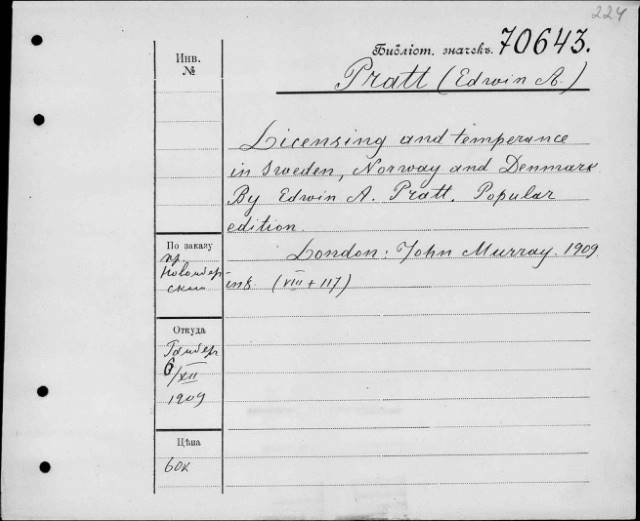 224
Библіот. значекъ. 70643.
Pratt (Edwin A.)
Инв.
№
Licensing and temperance
in Sweden, Norway and Denmark
By Edwin A. Pratt. Popular
edition.
London: John Murray. 1909
in 8. (VIII + 117)
По заказу
пр.
Откуда
6/XII
1909
Цѣна
60к